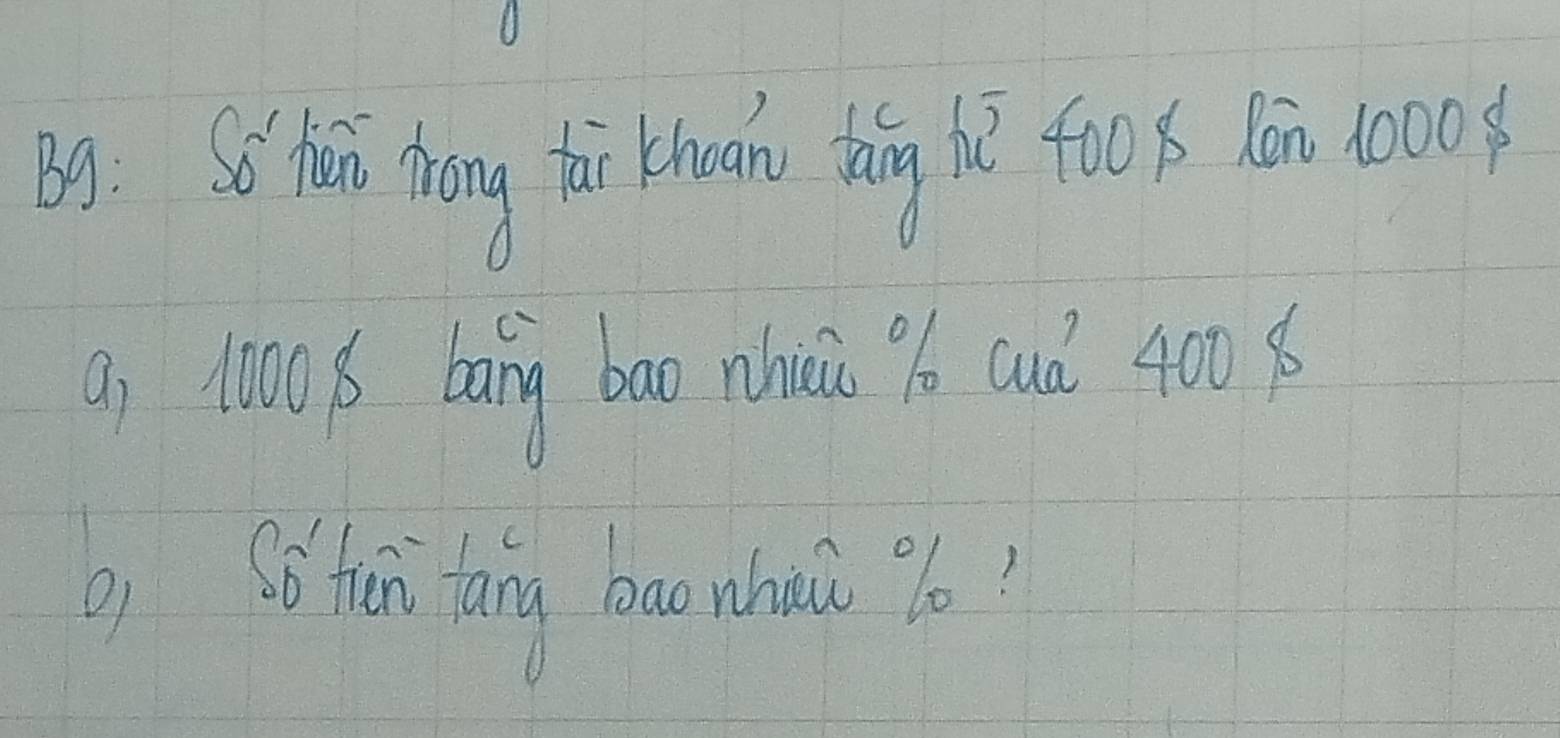 B9: Số tiền trong tài khoản tăng từ 400$ lên 1000$
a, 1000$ bằng bao nhiêu % của 400$
b, Số tiền tăng bao nhiêu %?